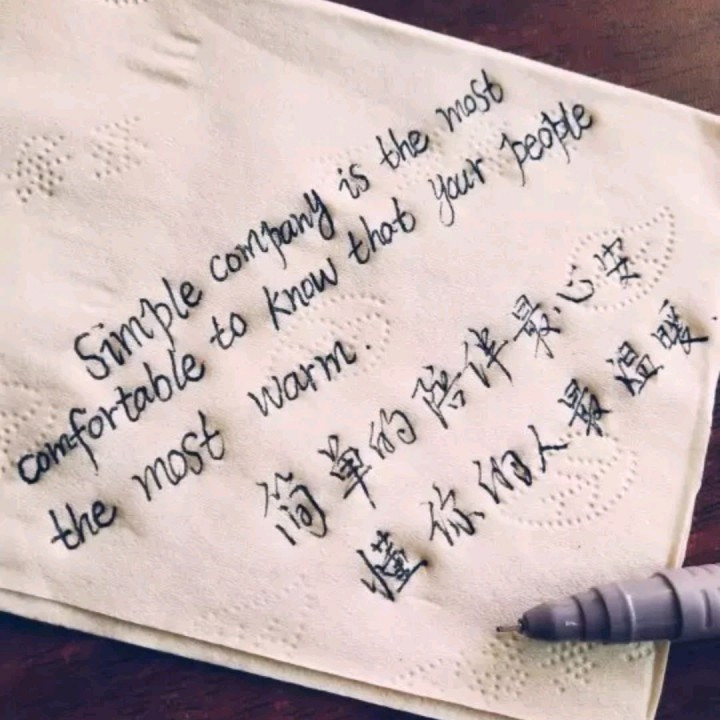 Simple company is the most
comfortable to know that your people
the most warm.
简单的陪伴最心安
懂你的人最温暖.